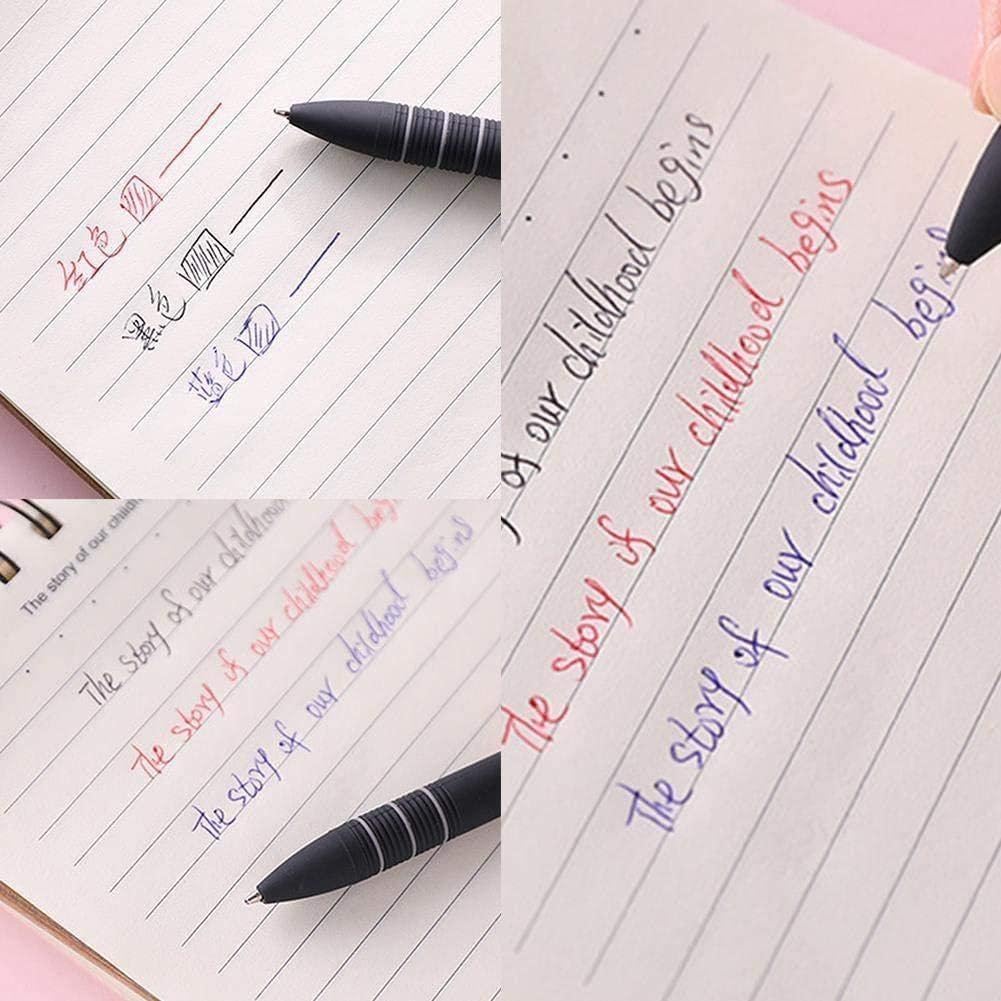 红色
黑色
蓝色
The story of our childh
The story of our childhood
The story if our childhood beg
The story of our childhood begins
of our childhood begins
The story if our childhood begins
The story of our childhood begin